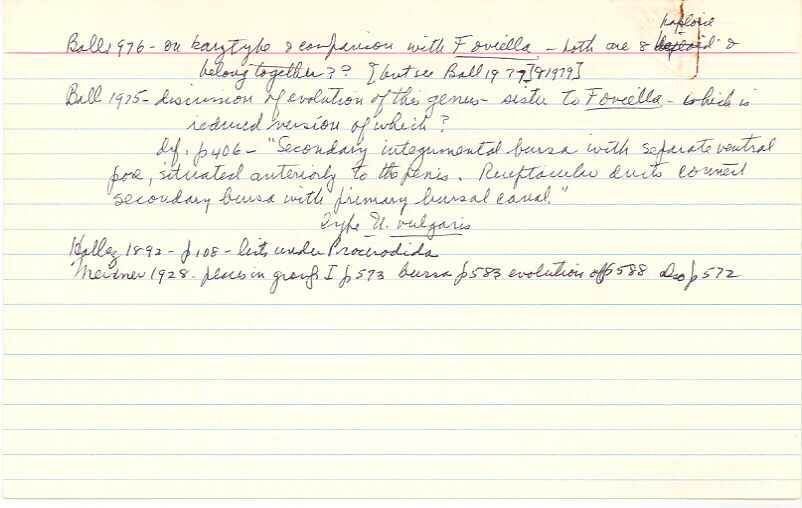 haploid
Ball 1976 - on karyotype & comparison with Foviella - both are 8 &
belong together?? [but see Ball 1977] [& 1979]
Ball 1975 - discussion of evolution of this genus - sister to Foviella - which is
reduced version of which?
df. p406 - "Secondary integumental bursa with separate ventral
pore, situated anteriorly to the penis. Receptacular ducts connect
secondary bursa with primary bursal canal."
Type U. vulgaris
Hallez 1892 - p108 - lists under Procerodida
Meixner 1928 - places in group I p573 bursa p583 evolution of p588 Also p572